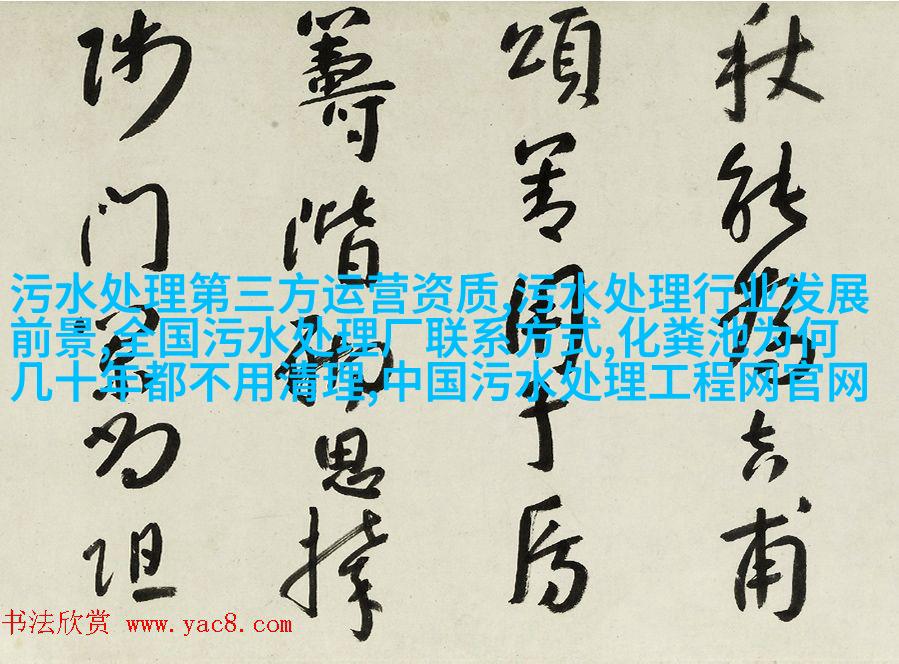 秋能賡吉甫
頌善周子房
籌階思
师门为阻
污水处理第三方运营资质,污水处理行业发展
前景,全国污水处理厂联系方式,化粪池为何
几十年都不用清理,中国污水处理工程网官网
书法欣赏 www.yac8.com